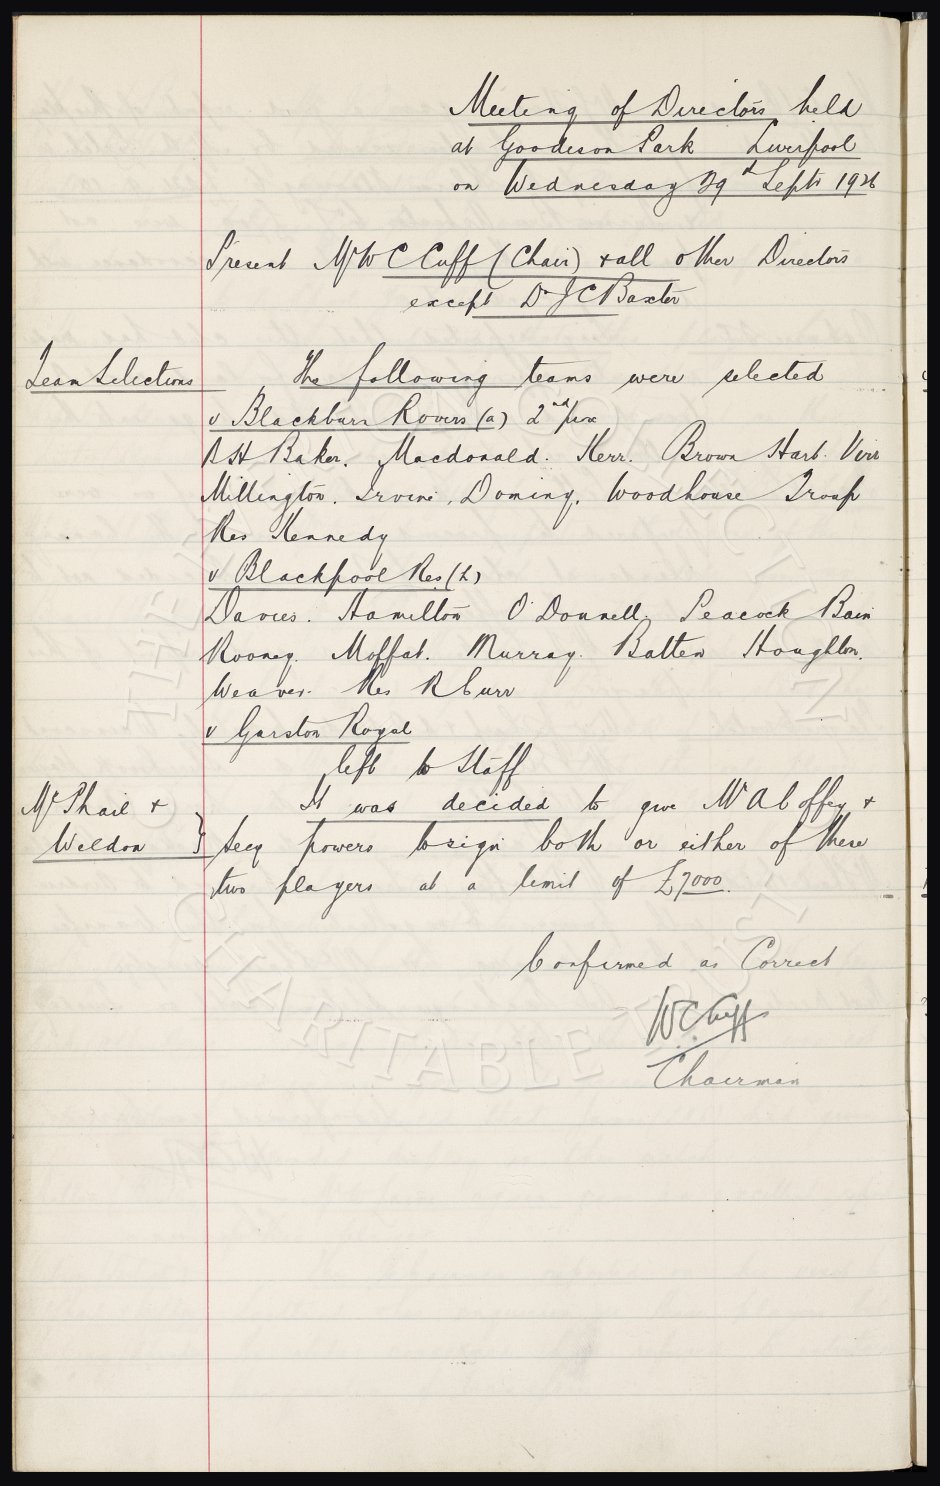 Meeting of Directors held
at Goodison Park Liverpool
on Wednesday 29th Septr 1926
Present Mr W C Cuff (Chair) + all other Directors
except Dr J C Baxter
Team Selections The following teams were selected
v Blackburn Rovers (a) 2nd Oct
B H Baker. Macdonald. Kerr. Brown Hart. Virr
Millington. Irvine. Dominy. Woodhouse Troup
Res Kennedy
v Blackpool Res (h)
Davies. Hamilton O'Donnell. Peacock Bain
Rooney. Moffat. Murray. Batten Houghton.
Weaver. Res R Curr
v Garston Royal
left to Staff
McPhail + It was decided to give Mr A Coffey +
Weldon } Secy powers to sign both or either of these
two players at a limit of £7000.
Confirmed as Correct
W C Cuff
Chairman
CHARITABLE